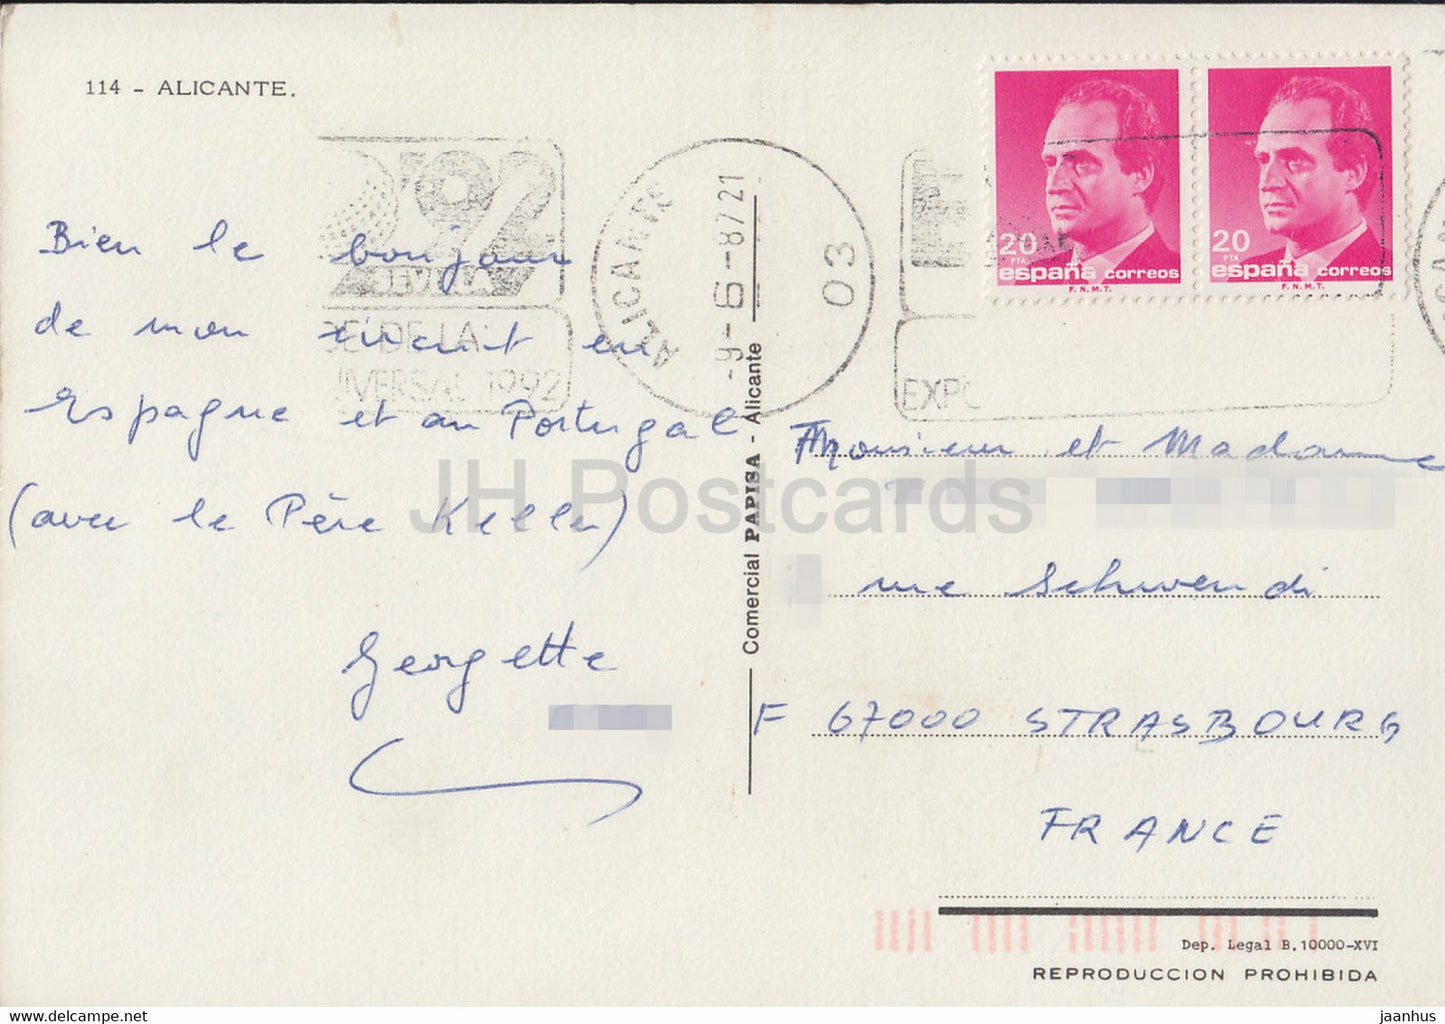 114 - ALICANTE.
'92
SEVILLA
SEDE DE LA
UNIVERSAL 1992
ALICANTE
-9-6-87 21
03
EXPO
20
PTA
españa correos
F.N.M.T.
20
PTA
españa correos
F.N.M.T.
Bien le bonjour
de mon circuit en
Espagne et au Portugal
(avec le Père Keller)
Georgette
Comercial PAPISA - Alicante
Monsieur et Madame
rue Schwendi
F 67000 STRASBOURG
FRANCE
Dep. Legal B.10000-XVI
REPRODUCCION PROHIBIDA
JH Postcards
www.delcampe.net
jaanhus